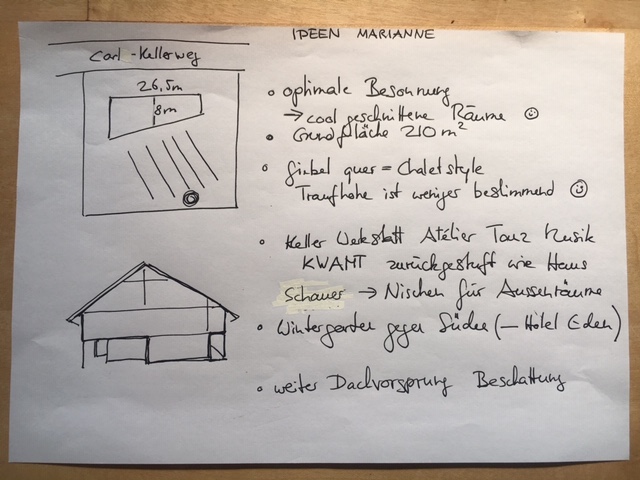 IDEEN MARIANNE
Carl-Kellerweg
26,5m
8m
• optimale Besonnung
→ cool geschnittene Räume ☺
• Grundfläche 210 m²
• Giebel quer = Chaletstyle
Traufhöhe ist weniger bestimmend ☺
• Keller Werkstatt Atelier Tanz Musik
KWAMT zurückgestuft wie Haus
Schauer → Nischen für Aussenräume
• Wintergarten gegen Süden (– Hotel Eden)
• weiter Dachvorsprung Beschattung